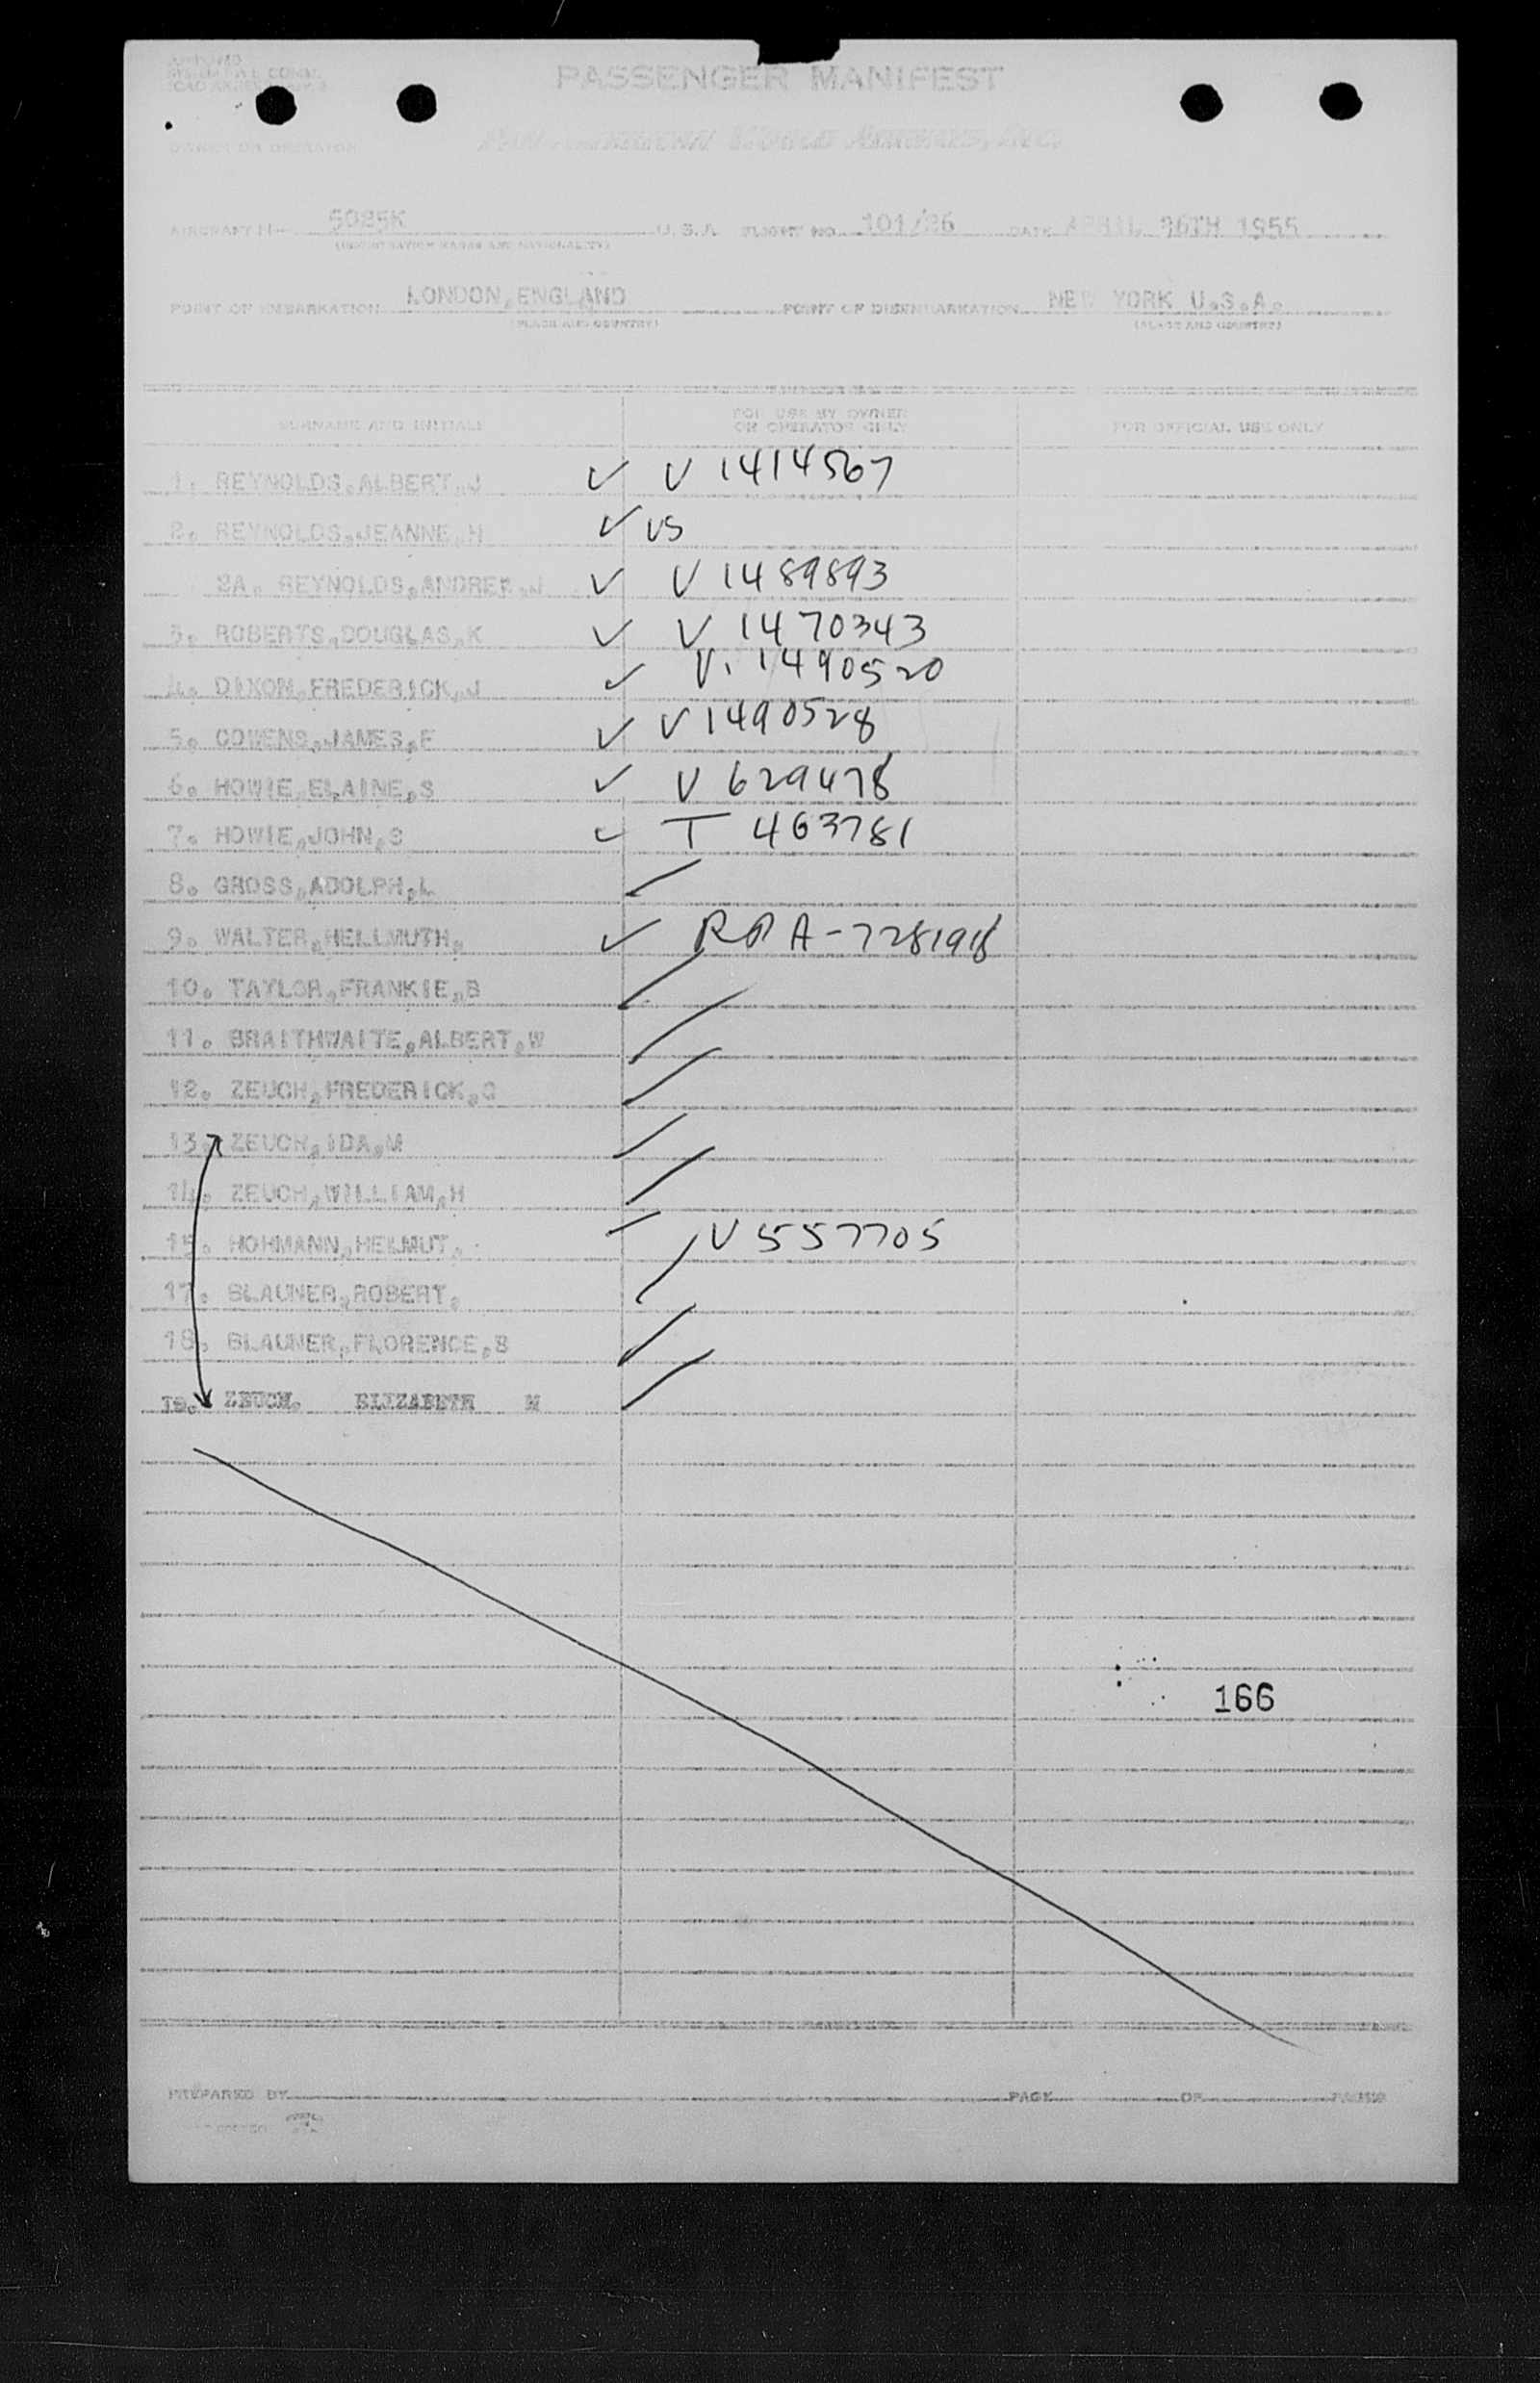 PASSENGER MANIFEST
OWNER OR OPERATOR
AIRCRAFT N- 5025K U.S.A. FLIGHT NO. 101/26 DATE APRIL 26TH 1955
(REGISTRATION MARKS AND NATIONALITY)
POINT OF EMBARKATION LONDON, ENGLAND POINT OF DISEMBARKATION NEW YORK U.S.A.
(PLACE AND COUNTRY) (PLACE AND COUNTRY)
SURNAME AND INITIALS FOR USE BY OWNER OR OPERATOR ONLY FOR OFFICIAL USE ONLY
1. REYNOLDS,ALBERT,J ✓ V 1414567
2. REYNOLDS,JEANNE,H ✓ US
2A. REYNOLDS,ANDREE,J ✓ V 1489893
3. ROBERTS,DOUGLAS,K ✓ V 1470343
4. DIXON,FREDERICK,J ✓ V. 1490520
5. COWENS,JAMES,F ✓ V 1490528
6. HOWIE,ELAINE,S ✓ V 629478
7. HOWIE,JOHN,S ✓ T 463781
8. GROSS,ADOLPH,L
9. WALTER,HELLMUTH, ✓ RPA-7281918
10. TAYLOR,FRANKIE,B
11. BRAITHWAITE,ALBERT,W
12. ZEUCH,FREDERICK,G
13. ZEUCH,IDA,M
14. ZEUCH,WILLIAM,H
15. HOHMANN,HELMUT, V 557705
17. BLAUNER,ROBERT,
18. BLAUNER,FLORENCE,B
19. ZEUCH, ELIZABETH M
166
PREPARED BY PAGE OF PAGES